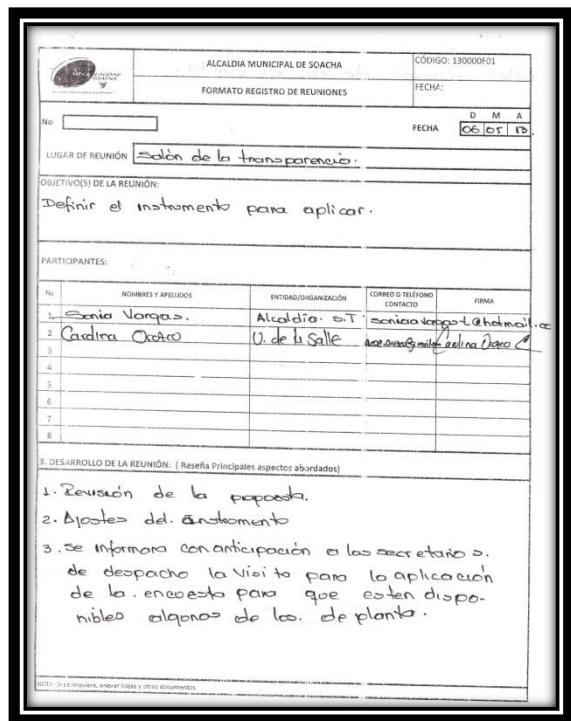 ALCALDIA MUNICIPAL DE SOACHA
CÓDIGO: 130000F01
FORMATO REGISTRO DE REUNIONES
FECHA:
No
D M A
FECHA 06 05 13
LUGAR DE REUNIÓN Salón de la transparencia.
OBJETIVO(S) DE LA REUNIÓN:
Definir el instrumento para aplicar.
PARTICIPANTES:
No NOMBRES Y APELLIDOS ENTIDAD/ORGANIZACIÓN CORREO O TELÉFONO CONTACTO FIRMA
1 Sonia Vargas. Alcaldía S.T
2 Carolina U. de la Salle Carolina
3
4
5
6
7
8
3. DESARROLLO DE LA REUNIÓN: ( Reseña Principales aspectos abordados)
1. Revisión de la propuesta.
2. Ajustes del. instrumento
3. Se informara con anticipación a los secretarios.
de despacho la visita para la aplicación
de la. encuesta para que esten dispo-
nibles algunos de los. de planta.
NOTA: Si se requiere, anexar hojas y otros documentos